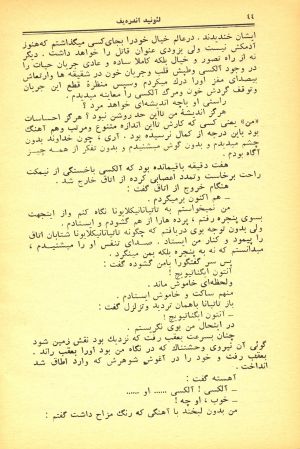 ٤٤ لئونید آندره‌یف
ایشان خندیدند. درعالم خیال خودرا بجای‌کسی میگذاشتم که‌هنوز
آدمکش نیست ولی بزودی عنوان قاتل را خواهد داشت. دیگر
نه از راه تصور و خیال بلکه کاملا ساده و عادی جریان حیات را
در وجود آلکسی وطپش قلب وجریان خون در شقیقه ها وارتعاش
بیصدای مغز اورا درک میکردم وسپس منظرهٔ قطع این جریان
وتوقف گردش خون ومرگ آلکسی را معاینه میدیدم.
راستی او باچه اندیشه‌ای خواهد مرد؟
هرگز اندیشهٔ من تااین حد روشن نبود؟ هرگز احساسات
«من» یعنی کسی که کارش تااین اندازه متنوع ومرتب وهم آهنگ
بود باین درجه از کمال نرسیده بود. آری، چون خداوند بدون
چشم میدیدم و بدون گوش میشنیدم و بدون تفکر از همه چیز
آگاه بودم.
هفت دقیقه باقیمانده بود که آلکسی باخستگی از نیمکت
راحت برخاست وتمدد اعصابی کرده از اتاق خارج شد.
هنگام خروج از اتاق گفت:
ــ هم اکنون برمیگردم.
من نمیخواستم به تاتیانانیکلایونا نگاه کنم واز اینجهت
بسوی پنجره رفتم، پرده هارا از هم گشودم و ایستادم.
ولی بدون توجه بوی دریافتم که چگونه تاتیانانیکلایونا شتابان اتاق
را پیمود و کنار من ایستاد. صدای تنفس او را میشنیدم،
میدانستم که نه به پنجره بلکه بمن مینگرد.
پس سر گفتگورا بامن گشوده گفت:
ــ آنتون ایگناتیویچ!
ولحظه‌ای خاموش ماند.
منهم ساکت و خاموش ایستادم.
باز تاتیانا باهمان تردید وتزلزل گفت:
ــ آنتون ایگناتیویچ!
در اینحال من بوی نگریستم.
چنان بسرعت بعقب رفت که نزدیک بود نقش زمین شود
گوئی آن نیروی وحشتناک که در نگاه من بود اورا بعقب راند.
بعقب رفت و خود را در آغوش شوهرش که وارد اطاق شد
انداخت.
آهسته گفت:
ــ آلکسی! آلکسی ...... او ......
ــ خوب، او چه!
من بدون لبخند با آهنگی که رنگ مزاح داشت گفتم: